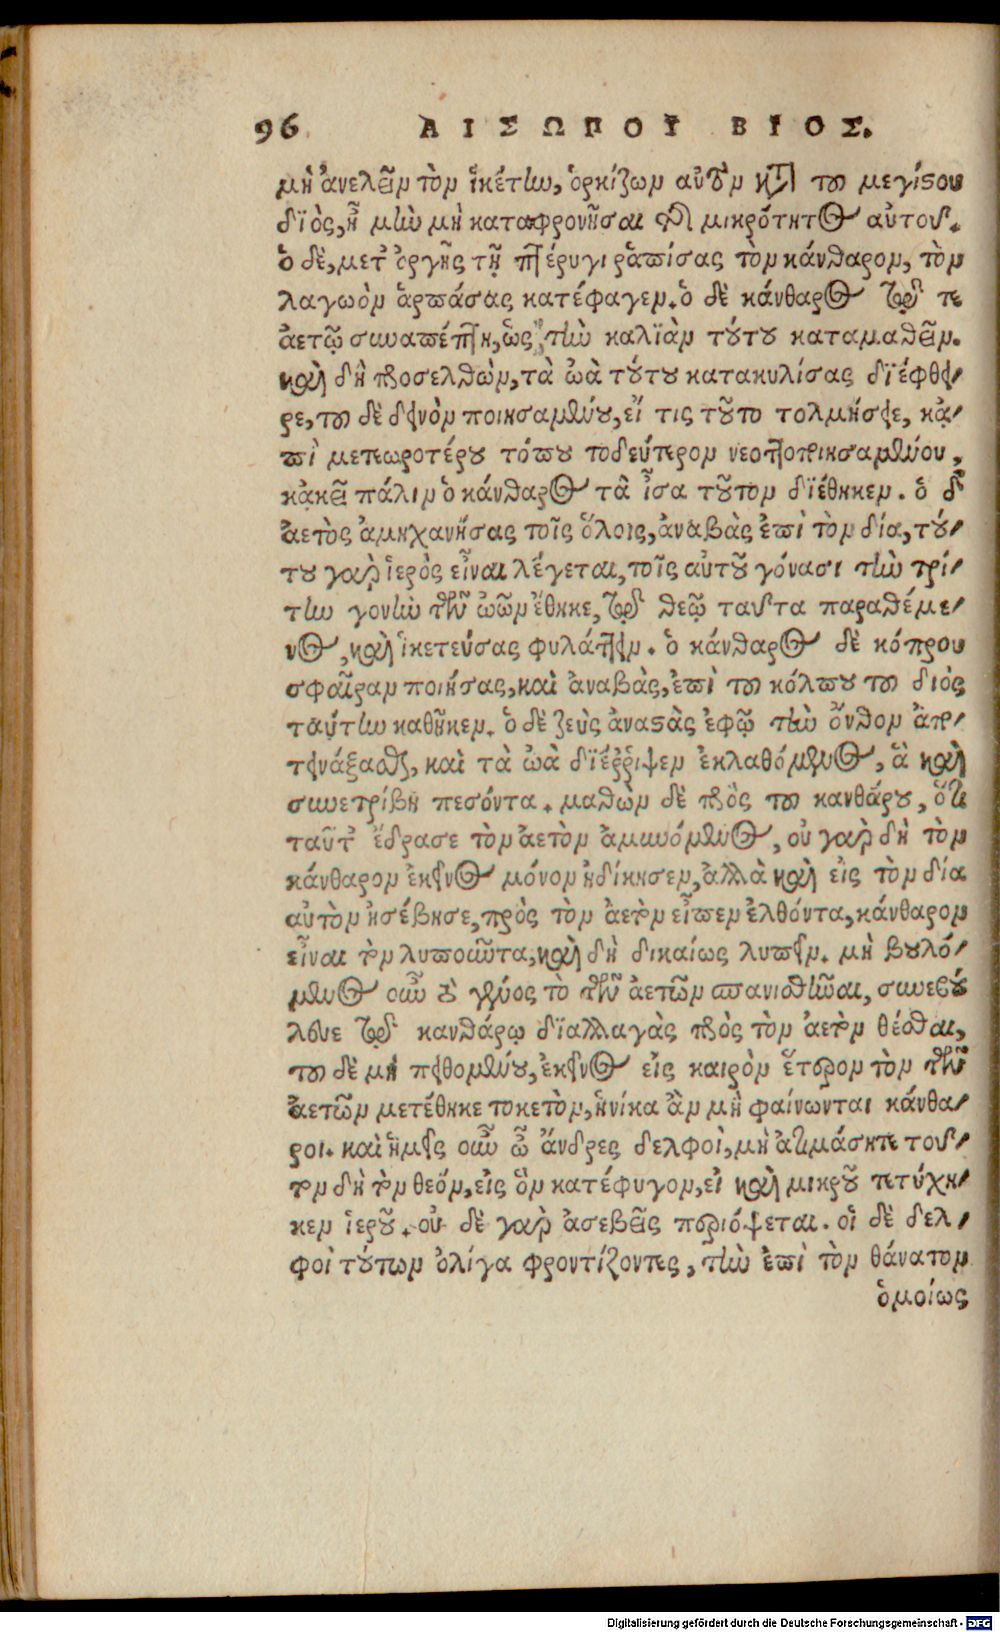 96 ΑΙΣΩΠΟΥ ΒΙΟΣ.
μὴ ἀνελεῖν τὸν ἱκέτην, ὁρκίζων αὐτὸν κατὰ τοῦ μεγίστου
διὸς, ἦ μὴν μὴ καταφρονῆσαι τῆς μικρότητος αὐτοῦ.
ὁ δὲ, μετ᾽ ὀργῆς τῇ πτέρυγι ῥαπίσας τὸν κάνθαρον, τὸν
λαγωὸν ἁρπάσας κατέφαγεν. ὁ δὲ κάνθαρος τῷ τε
ἀετῷ συναπέπτη, ὡς τὴν καλϊὰν τούτου καταμαθεῖν.
καὶ δὴ προσελθὼν, τὰ ὠὰ τούτου κατακυλίσας διέφθει-
ρε, τοῦ δὲ δεινὸν ποιησαμένου, εἴ τις τοῦτο τολμήσειε, κἀ-
πὶ μετεωροτέρου τόπου τοδεύτερον νεοττοποιησαμένου,
κἀκεῖ πάλιν ὁ κάνθαρος τὰ ἶσα τοῦτον διέθηκεν. ὁ δὲ
ἀετὸς ἀμηχανήσας τοῖς ὅλοις, ἀναβὰς ἐπὶ τὸν δία, τού-
του γὰρ ἱερὸς εἶναι λέγεται, τοῖς αὐτοῦ γόνασι τὴν τρί-
την γονὴν τῶν ὠῶν ἔθηκε, τῷ θεῷ ταῦτα παραθέμε-
νος, καὶ ἱκετεύσας φυλάττειν. ὁ κάνθαρος δὲ κόπρου
σφαῖραν ποιήσας, καὶ ἀναβὰς, ἐπὶ τοῦ κόλπου τοῦ διὸς
ταύτην καθῆκεν. ὁ δὲ ζεὺς ἀναστὰς ἐφῷ τὴν ὄνθον ἀπο-
τινάξασθαι, καὶ τὰ ὠὰ διέῤῥιψεν ἐκλαθόμενος, ἃ καὶ
συνετρίβη πεσόντα. μαθὼν δὲ πρὸς τοῦ κανθάρου, ὅτι
ταῦτ᾽ ἔδρασε τὸν ἀετὸν ἀμυνόμενος, οὐ γὰρ δὴ τὸν
κάνθαρον ἐκεῖνος μόνον ἠδίκησεν, ἀλλὰ καὶ εἰς τὸν δία
αὐτὸν ἠσέβησε, πρὸς τὸν ἀετὸν εἶπεν ἐλθόντα, κάνθαρον
εἶναι τὸν λυποῦντα, καὶ δὴ δικαίως λυπεῖν. μὴ βουλό-
μενος οὖν τὸ γένος τὸ τῶν ἀετῶν σπανισθῆναι, συνεβού
λευε τῷ κανθάρῳ διαλλαγὰς πρὸς τὸν ἀετὸν θέσθαι,
τοῦ δὲ μὴ πειθομένου, ἐκεῖνος εἰς καιρὸν ἕτερον τὸν τῶν
ἀετῶν μετέθηκε τοκετὸν, ἡνίκα ἂν μὴ φαίνωνται κάνθα-
ροι. καὶ ἡμεῖς οὖν ὦ ἄνδρες δελφοὶ, μὴ ἀτιμάσητε τοῦ-
τον δὴ τὸν θεόν, εἰς ὃν κατέφυγον, εἰ καὶ μικροῦ τετύχη-
κεν ἱεροῦ. οὐ δὲ γὰρ ἀσεβεῖς περιόψεται. οἱ δὲ δελ-
φοὶ τούτων ὀλίγα φροντίζοντες, τὴν ἐπὶ τὸν θάνατον
ὁμοίως
Digitalisierung gefördert durch die Deutsche Forschungsgemeinschaft - DFG